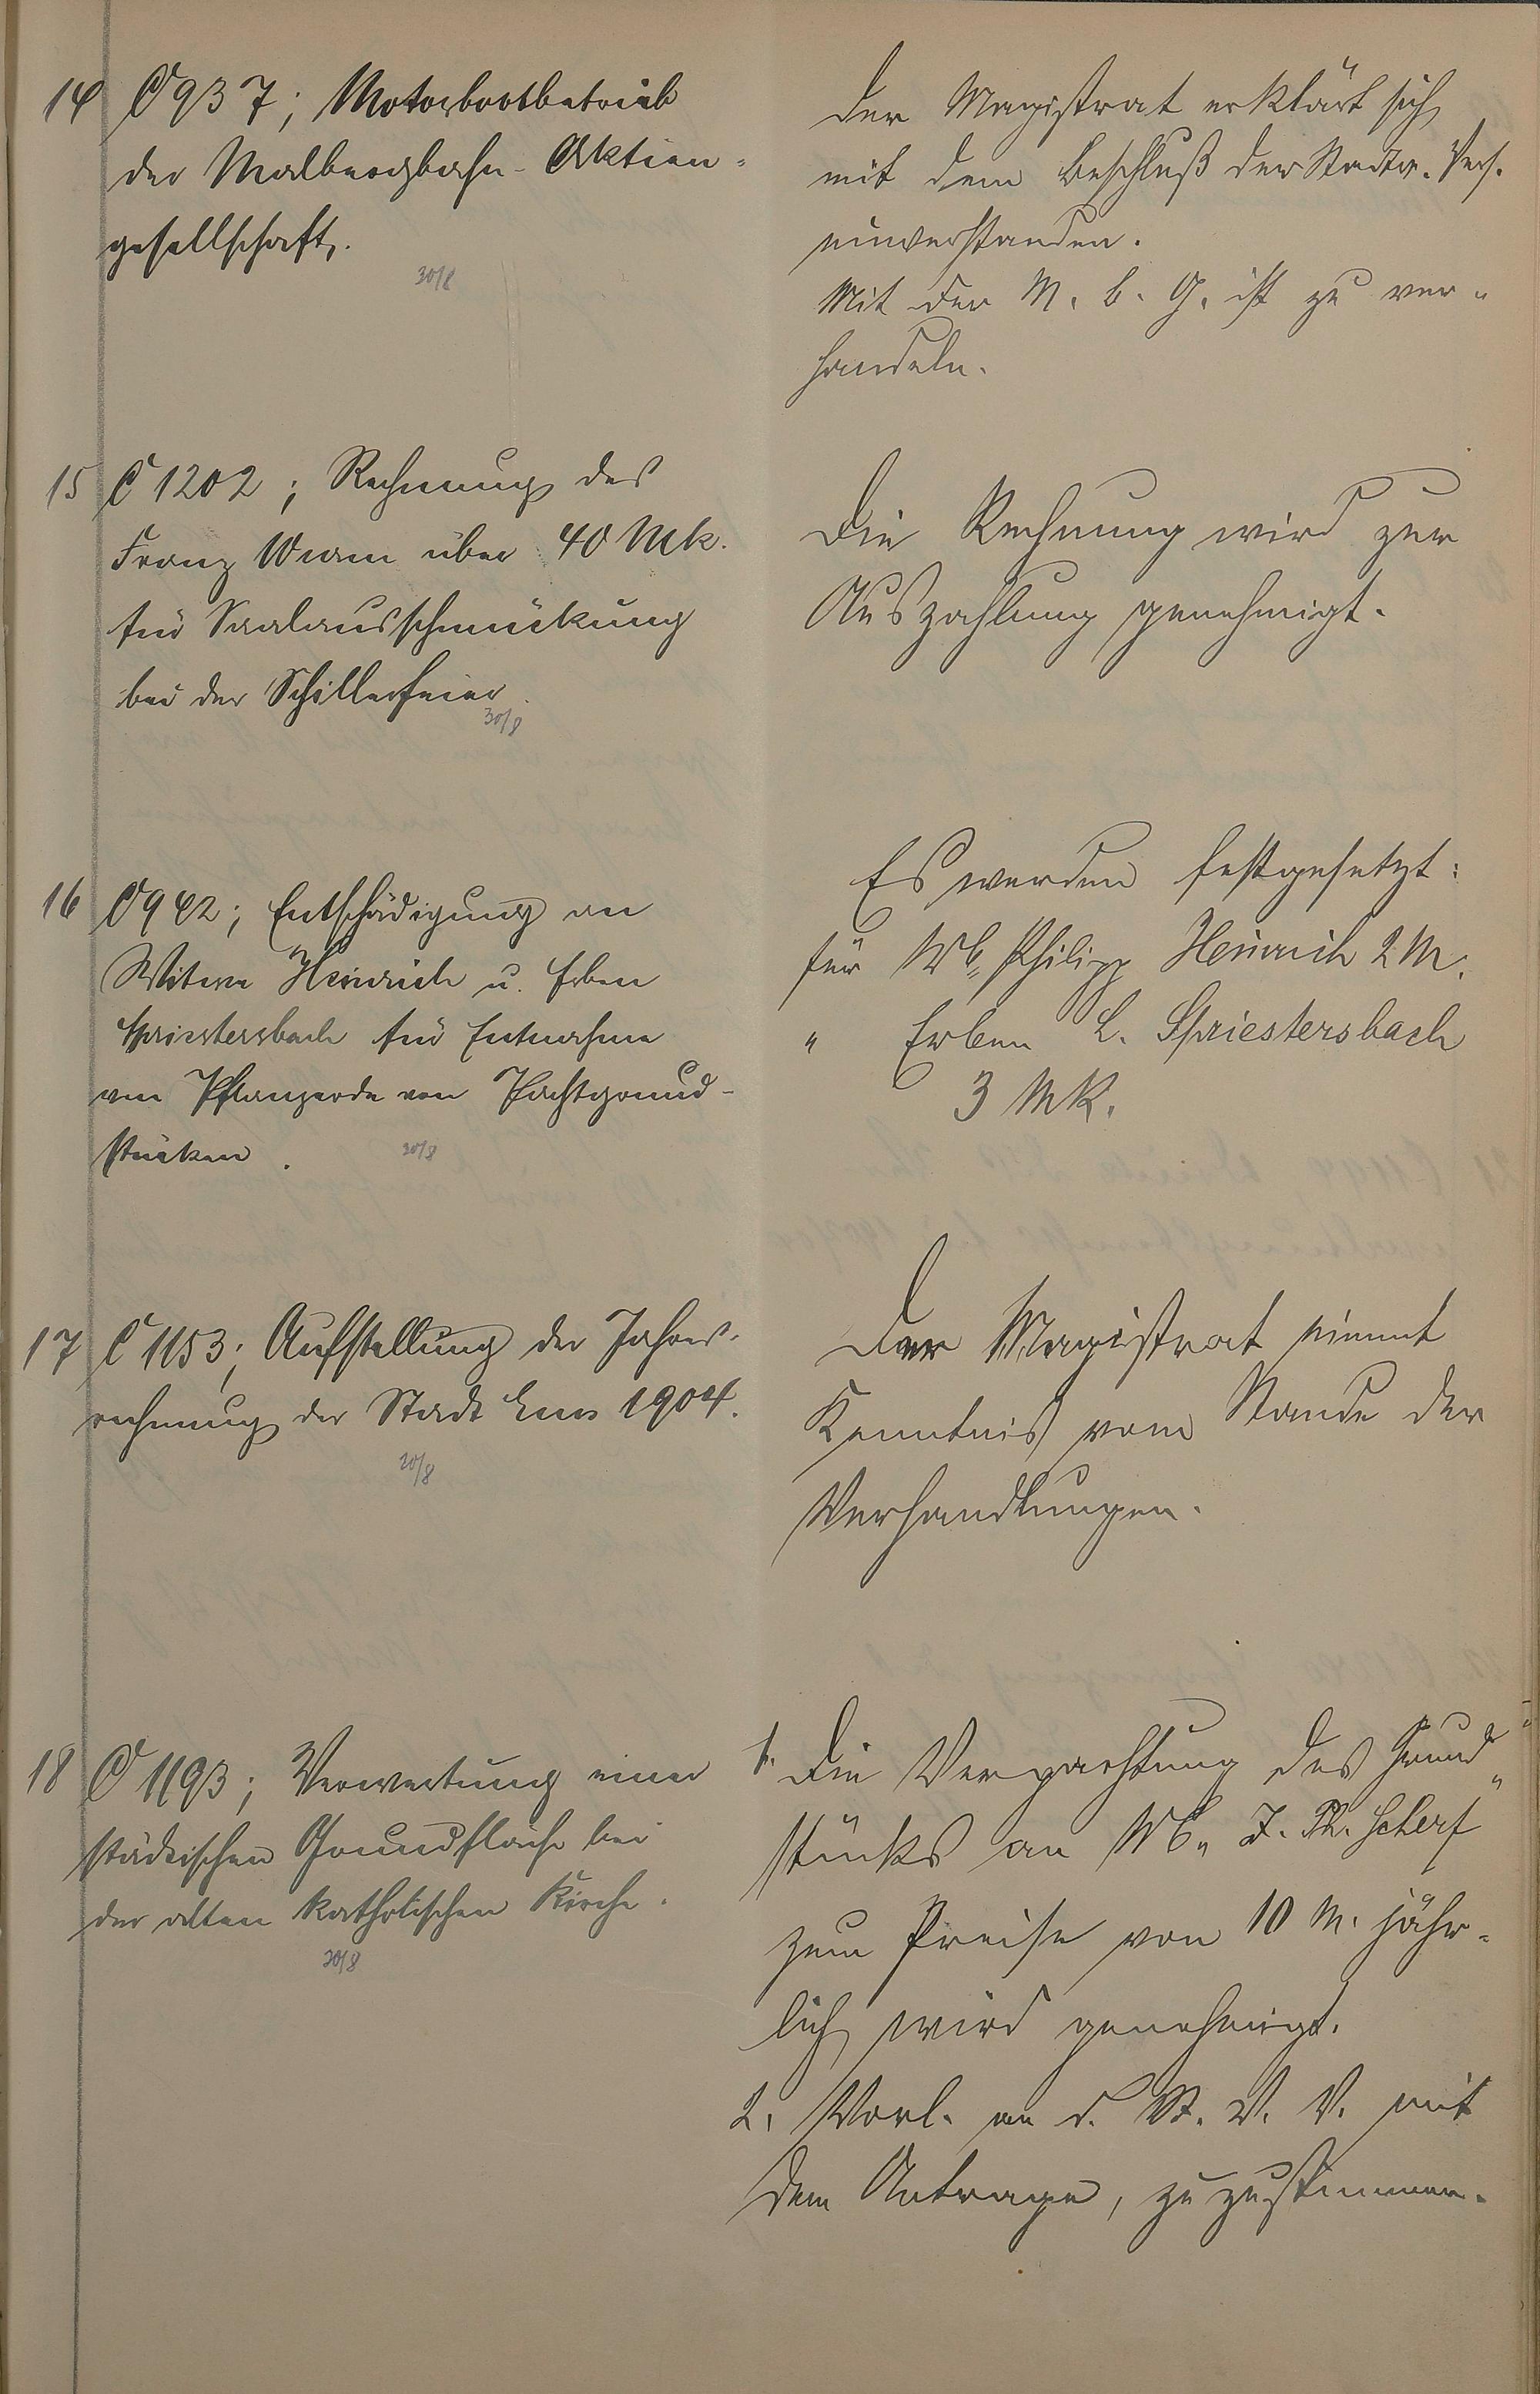 14 C 937; Motorbootbetrieb
der Malbergbahn-Aktien-
gesellschaft.
30/8
Der Magistrat erklärt sich
mit dem Beschluß der Stadtv. Vers.
einverstanden.
Mit der M. B. G. ist zu ver-
handeln.
15 C 1202; Rechnung des
Franz über 40 Mk.
für Saalausschmückung
bei der Schillerfeier.
30/8
Die Rechnung wird zur
Auszahlung genehmigt.
16 C 942; Entschädigung an
Witwe Heinrich u. Erben
Spriestersbach für Entnahme
von Pflanzerde von Pachtgrund-
stücken.
30/8
Es werden festgesetzt:
für Wb. Philipp Heinrich 2 M.
" Erben L. Spriestersbach
3 Mk.
17 C 1153; Aufstellung der Jahres-
rechnung der Stadt Ems 1904.
30/8
Der Magistrat nimmt
Kenntnis vom Stande der
Verhandlungen.
18 C 1193; Verwertung einer
städtischen Grundfläche bei
der alten katholischen Kirche.
30/8
1. Die Verpachtung des Grund-
stücks an Wb. J. Ph. Scherf
zum Preise von 10 M. jähr-
lich wird genehmigt.
2. Vorl. an d. St. V. V. mit
dem Antrage, zuzustimmen.